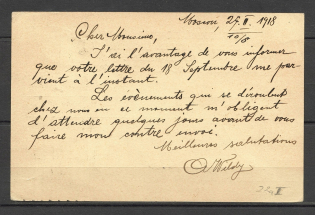 Moscou, 27. II. 1918
10/5
Cher Monsieur,
J'ai l'avantage de vous informer
que votre lettre du 18 Septembre me par-
vient à l'instant.
Les évènements qui se déroulent
chez nous en ce moment m'obligent
d'attendre quelques jours avant de vous
faire mon contre envoi.
Meilleures salutations